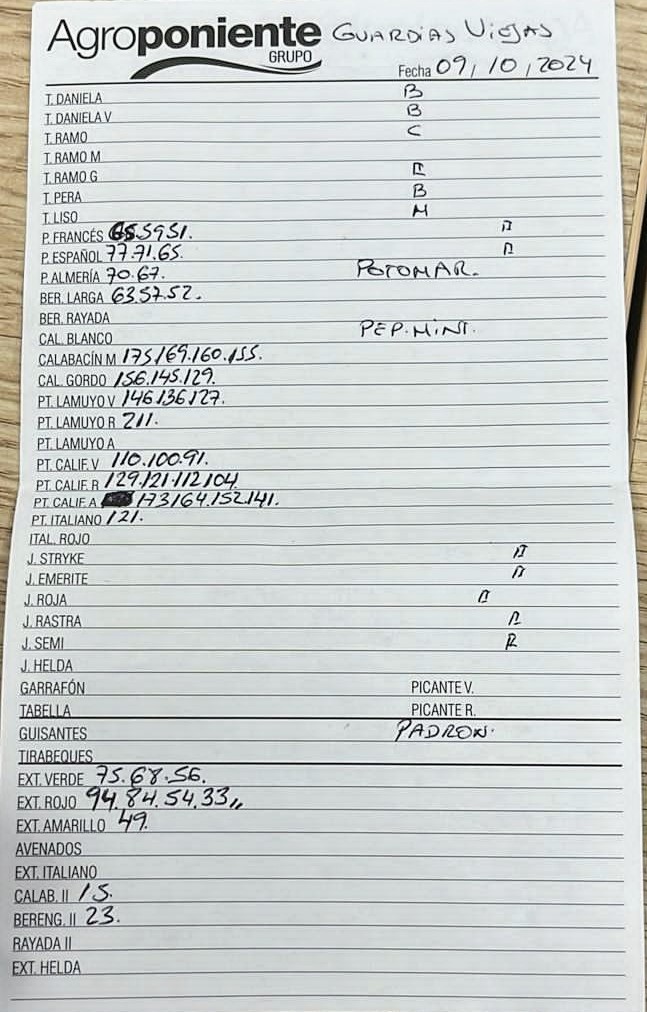 Agroponiente GUARDIAS VIEJAS
GRUPO
Fecha 09/10/2024
T. DANIELA B
T. DANIELA V B
T. RAMO C
T. RAMO M
T. RAMO G
T. PERA B
T. LISO M
P. FRANCÉS 65.59.51.
P. ESPAÑOL 77.71.65.
P. ALMERÍA 70.67. POTOMAR.
BER. LARGA 63.57.52.
BER. RAYADA
CAL. BLANCO PEP.MINI.
CALABACÍN M 175/169.160.155.
CAL. GORDO 156.145.129.
PT. LAMUYO V 146.136.127.
PT. LAMUYO R 211.
PT. LAMUYO A
PT. CALIF. V 110.100.91.
PT. CALIF. R 129.121.112.104
PT. CALIF. A 173.164.152.141.
PT. ITALIANO 121.
ITAL. ROJO
J. STRYKE
J. EMERITE
J. ROJA
J. RASTRA
J. SEMI
J. HELDA
GARRAFÓN PICANTE V.
TABELLA PICANTE R.
GUISANTES PADRON.
TIRABEQUES
EXT. VERDE 75.68.56.
EXT. ROJO 94.84.54.33,,
EXT. AMARILLO 49.
AVENADOS
EXT. ITALIANO
CALAB. II 15.
BERENG. II 23.
RAYADA II
EXT. HELDA